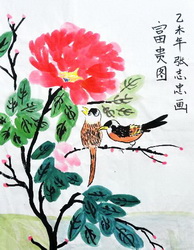 乙未年 张志忠画
富贵图